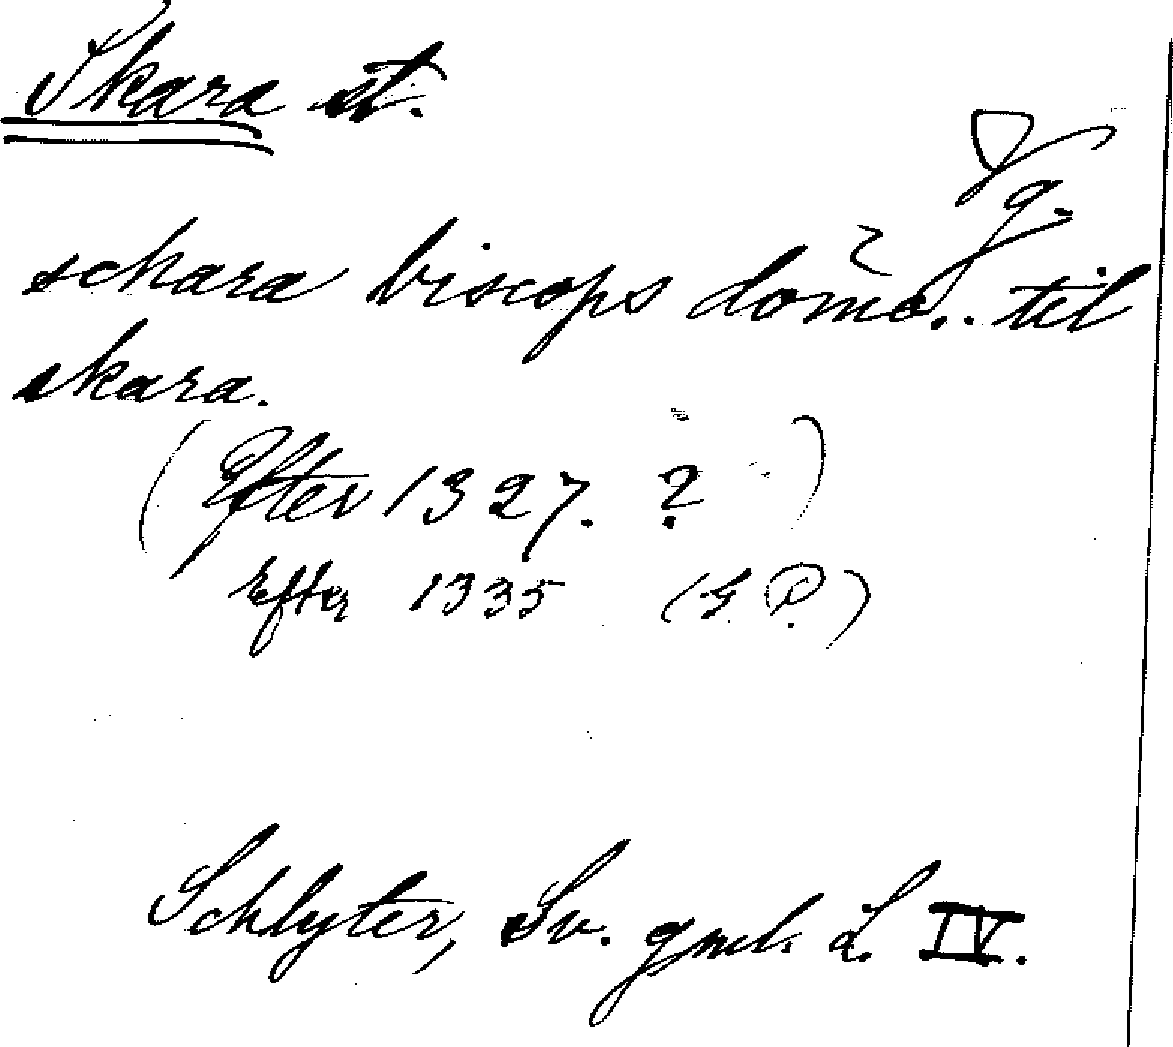 Skara st.
Vg.
schara biscops dome.. til
skara.
(Efter 1327. ?)
Efter 1335 (G. P.)
Schlyter, Sv. gml. L. IV.